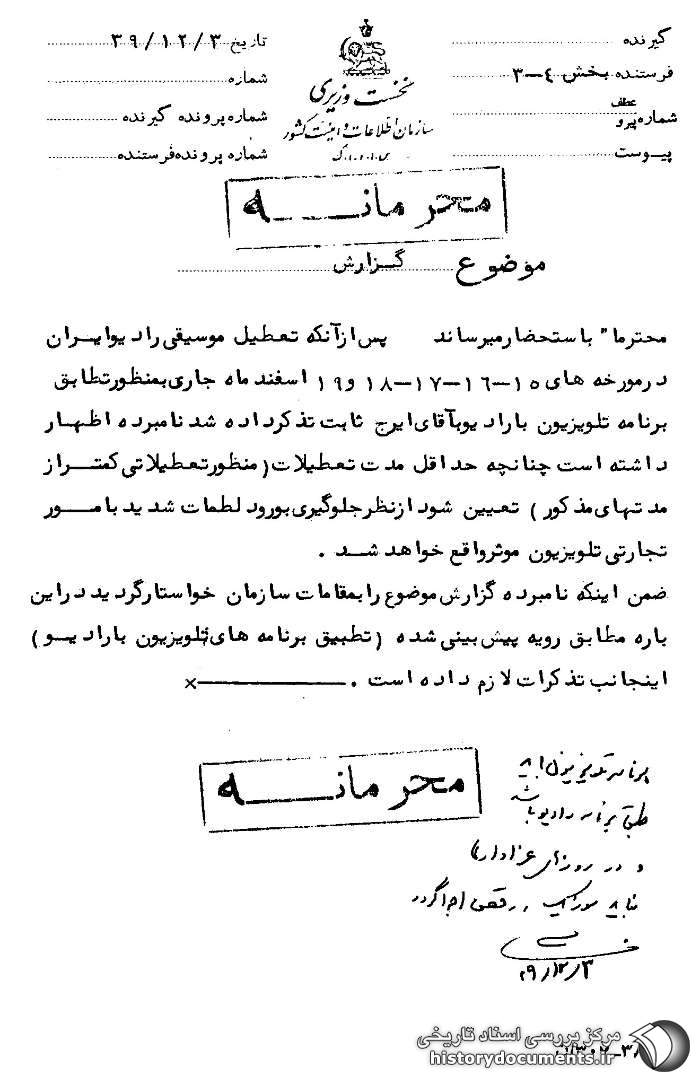 گیرنده
فرستنده بخش ٤-٣
شماره عطف پیرو
پیوست
نخست وزیری
سازمان اطلاعات و امنیت کشور
س.ا.و.ا.ک
تاریخ ٣٩/١٢/٣
شماره
شماره پرونده گیرنده
شماره پرونده فرستنده
محرمانه
موضوع گزارش
محترما" باستحضار میرساند پس از آنکه تعطیل موسیقی رادیو ایران
در مورخه های ١٥-١٦-١٧-١٨ و ١٩ اسفند ماه جاری بمنظور تطابق
برنامه تلویزیون با رادیو بآقای ایرج ثابت تذکر داده شد نامبرده اظهار
داشته است چنانچه حداقل مدت تعطیلات (منظور تعطیلاتی کمتر از
مدتهای مذکور) تعیین شود از نظر جلوگیری بورود لطمات شدید بامور
تجارتی تلویزیون موثر واقع خواهد شد .
ضمن اینکه نامبرده گزارش موضوع را بمقامات سازمان خواستار گردید در این
باره مطابق رویه پیش بینی شده (تطبیق برنامه های تلویزیون با رادیو)
اینجانب تذکرات لازم داده است . ×
محرمانه
برنامه تلویزیون باید
طبق برنامه رادیو باشد
و در روزهای عزاداری
نباید موزیک و رقص اجرا گردد
٣٩/١٢/٣
مرکز بررسی اسناد تاریخی
historydocuments.ir